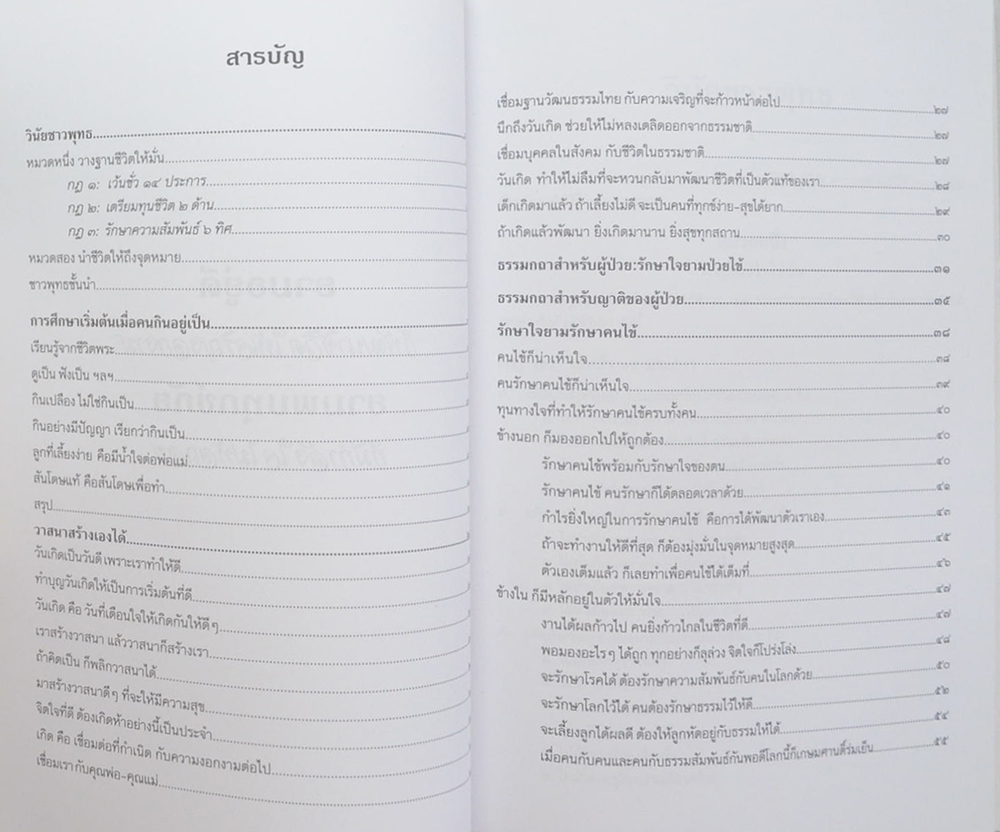 สารบัญ
วินัยชาวพุทธ
หมวดหนึ่ง วางฐานชีวิตให้มั่น
กฎ ๑: เว้นชั่ว ๑๔ ประการ
กฎ ๒: เตรียมทุนชีวิต ๒ ด้าน
กฎ ๓: รักษาความสัมพันธ์ ๖ ทิศ
หมวดสอง นำชีวิตให้ถึงจุดหมาย
ชาวพุทธชั้นนำ
การศึกษาเริ่มต้นเมื่อคนกินอยู่เป็น
เรียนรู้จากชีวิตพระ
ดูเป็น ฟังเป็น ฯลฯ
กินเปลือง ไม่ใช่กินเป็น
กินอย่างมีปัญญา เรียกว่ากินเป็น
ลูกที่เลี้ยงง่าย คือมีน้ำใจต่อพ่อแม่
สันโดษแท้ คือสันโดษเพื่อทำ
สรุป
วาสนาสร้างเองได้
วันเกิดเป็นวันดี เพราะเราทำให้ดี
ทำบุญวันเกิดให้เป็นการเริ่มต้นที่ดี
วันเกิด คือ วันที่เตือนใจให้เกิดกันให้ดีๆ
เราสร้างวาสนา แล้ววาสนาก็สร้างเรา
ถ้าคิดเป็น ก็พลิกวาสนาได้
มาสร้างวาสนาดีๆ ที่จะให้มีความสุข
จิตใจที่ดี ต้องเกิดห้าอย่างนี้เป็นประจำ
เกิด คือ เชื่อมต่อที่กำเนิด กับความงอกงามต่อไป
เชื่อมเรากับคุณพ่อ-คุณแม่
เชื่อมฐานวัฒนธรรมไทย กับความเจริญที่จะก้าวหน้าต่อไป ๒๗
นึกถึงวันเกิด ช่วยให้ไม่หลงเตลิดออกจากธรรมชาติ ๒๗
เชื่อมบุคคลในสังคม กับชีวิตในธรรมชาติ ๒๗
วันเกิด ทำให้ไม่ลืมที่จะหวนกลับมาพัฒนาชีวิตที่เป็นตัวแท้ของเรา ๒๘
เด็กเกิดมาแล้ว ถ้าเลี้ยงไม่ดี จะเป็นคนที่ทุกข์ง่าย-สุขได้ยาก ๒๙
ถ้าเกิดแล้วพัฒนา ยิ่งเกิดมานาน ยิ่งสุขทุกสถาน ๓๐
ธรรมกถาสำหรับผู้ป่วย:รักษาใจยามป่วยไข้ ๓๑
ธรรมกถาสำหรับญาติของผู้ป่วย ๓๕
รักษาใจยามรักษาคนไข้ ๓๘
คนไข้ก็น่าเห็นใจ ๓๘
คนรักษาคนไข้ก็น่าเห็นใจ ๓๙
ทุนทางใจที่ทำให้รักษาคนไข้ครบทั้งคน ๔๐
ข้างนอก ก็มองออกไปให้ถูกต้อง ๔๐
รักษาคนไข้พร้อมกับรักษาใจของตน ๔๐
รักษาคนไข้ คนรักษาก็ได้ตลอดเวลาด้วย ๔๑
กำไรยิ่งใหญ่ในการรักษาคนไข้ คือการได้พัฒนาตัวเราเอง ๔๓
ถ้าจะทำงานให้ดีที่สุด ก็ต้องมุ่งมั่นในจุดหมายสูงสุด ๔๕
ตัวเองเต็มแล้ว ก็เลยทำเพื่อคนไข้ได้เต็มที่ ๔๖
ข้างใน ก็มีหลักอยู่ในตัวให้มั่นใจ ๔๗
งานได้ผลก้าวไป คนยิ่งก้าวไกลในชีวิตที่ดี ๔๗
พอมองอะไรๆ ได้ถูก ทุกอย่างก็ลุล่วง จิตใจก็โปร่งโล่ง ๔๘
จะรักษาโรคได้ ต้องรักษาความสัมพันธ์กับคนในโลกด้วย ๕๐
จะรักษาโลกไว้ได้ คนต้องรักษาธรรมไว้ให้ดี ๕๒
จะเลี้ยงลูกได้ผลดี ต้องให้ลูกหัดอยู่กับธรรมให้ได้ ๕๔
เมื่อคนกับคนและคนกับธรรมสัมพันธ์กันพอดีโลกนี้ก็เกษมศานติ์ร่มเย็น ๕๕